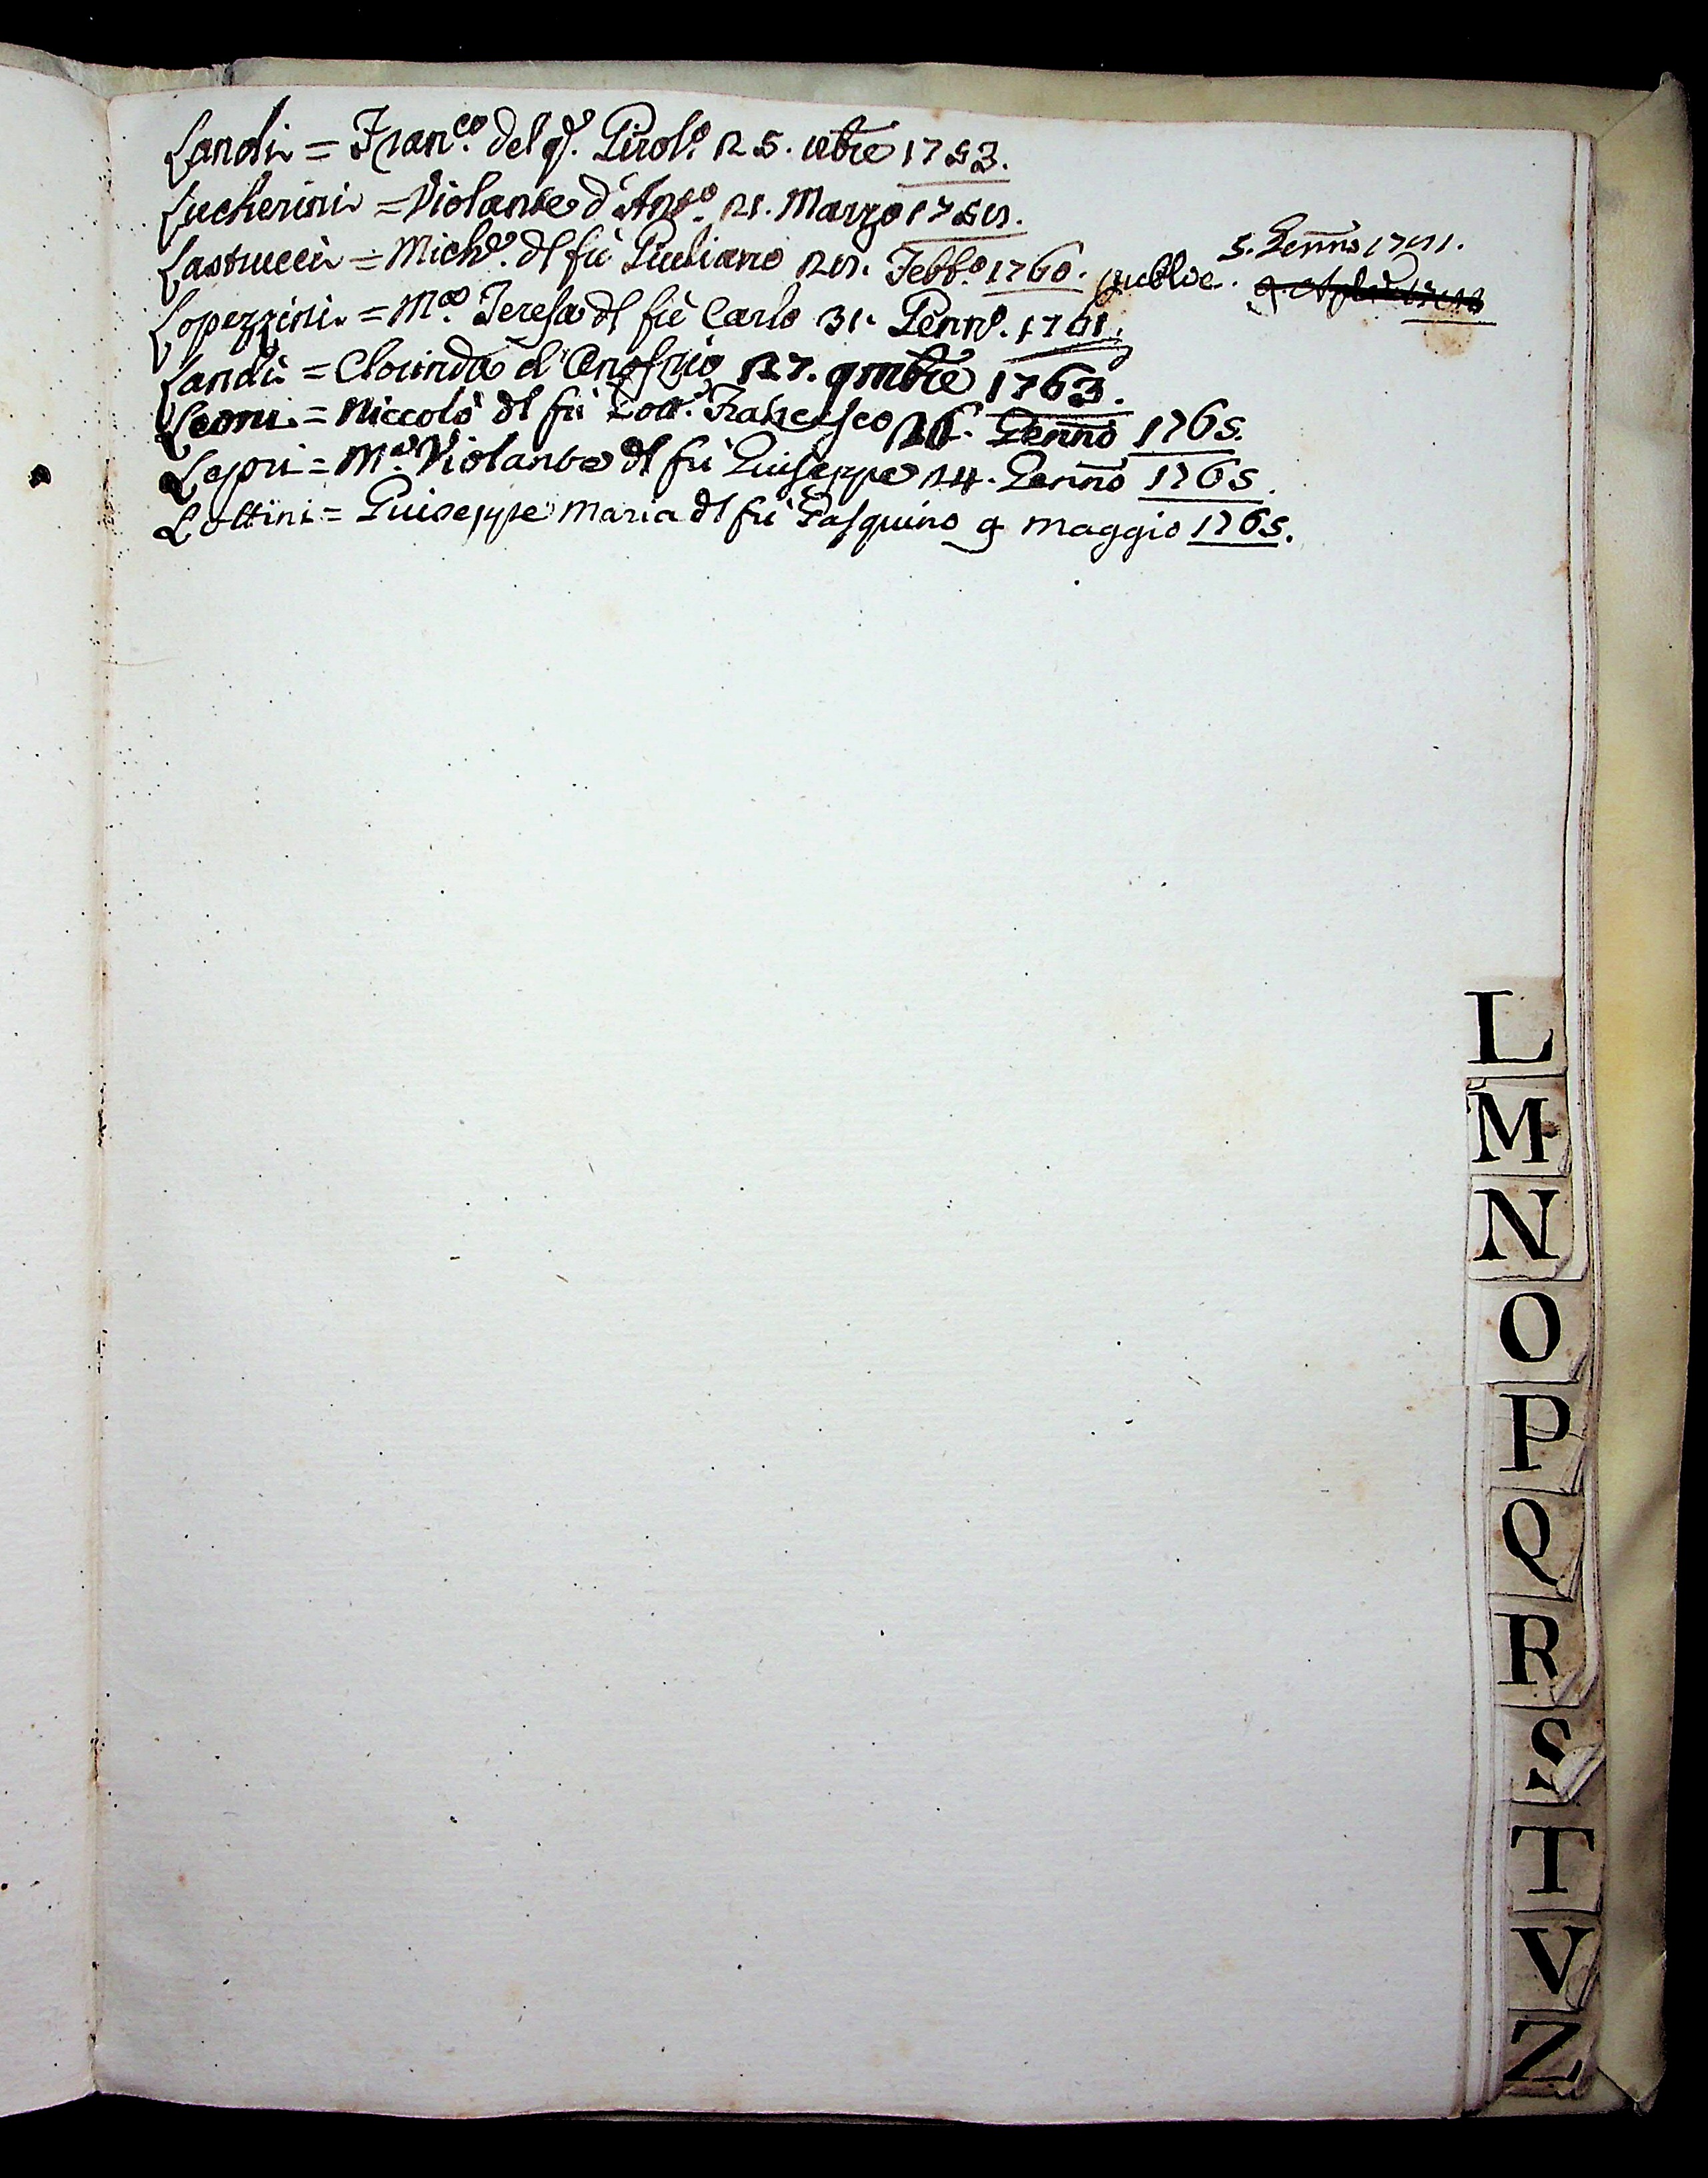 Landi = Fran.co del q. Girol.o 25. 1753.
Lucherini = Violante d'Ant.o 21. Marzo
Lastrucci = Mich.e dl fù Giuliano Febb.o 1760. public. 5. Genn.o
Lopezzini = M.a Teresa dl fù Carlo 31. Genn.o 1761.
Landi = Clorinda d'Onofrio 27. 9mbre 1763.
Leoni = Niccolò dl fù Dott.e Francesco Genn.o 1765.
Lepri = M.a Violante dl fù Guiseppe 24. Genn.o 1765.
Lottini = Guiseppe Maria dl fù Pasquino 9 Maggio 1765.
L
M
N
O
P
Q
R
S
T
V
Z